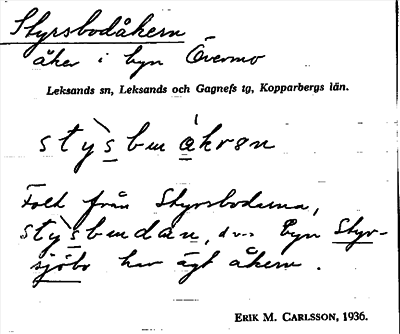 Styrsbodåkern
åker i byn Övermo
Leksands sn, Leksands och Gagnefs tg, Kopparbergs län.
stỳsbu åkrən
Folk från Styrsbodarna,
stỳsbudan, d.v.s. byn Styr-
sjöbo har ägt åkern.
ERIK M. CARLSSON, 1936.